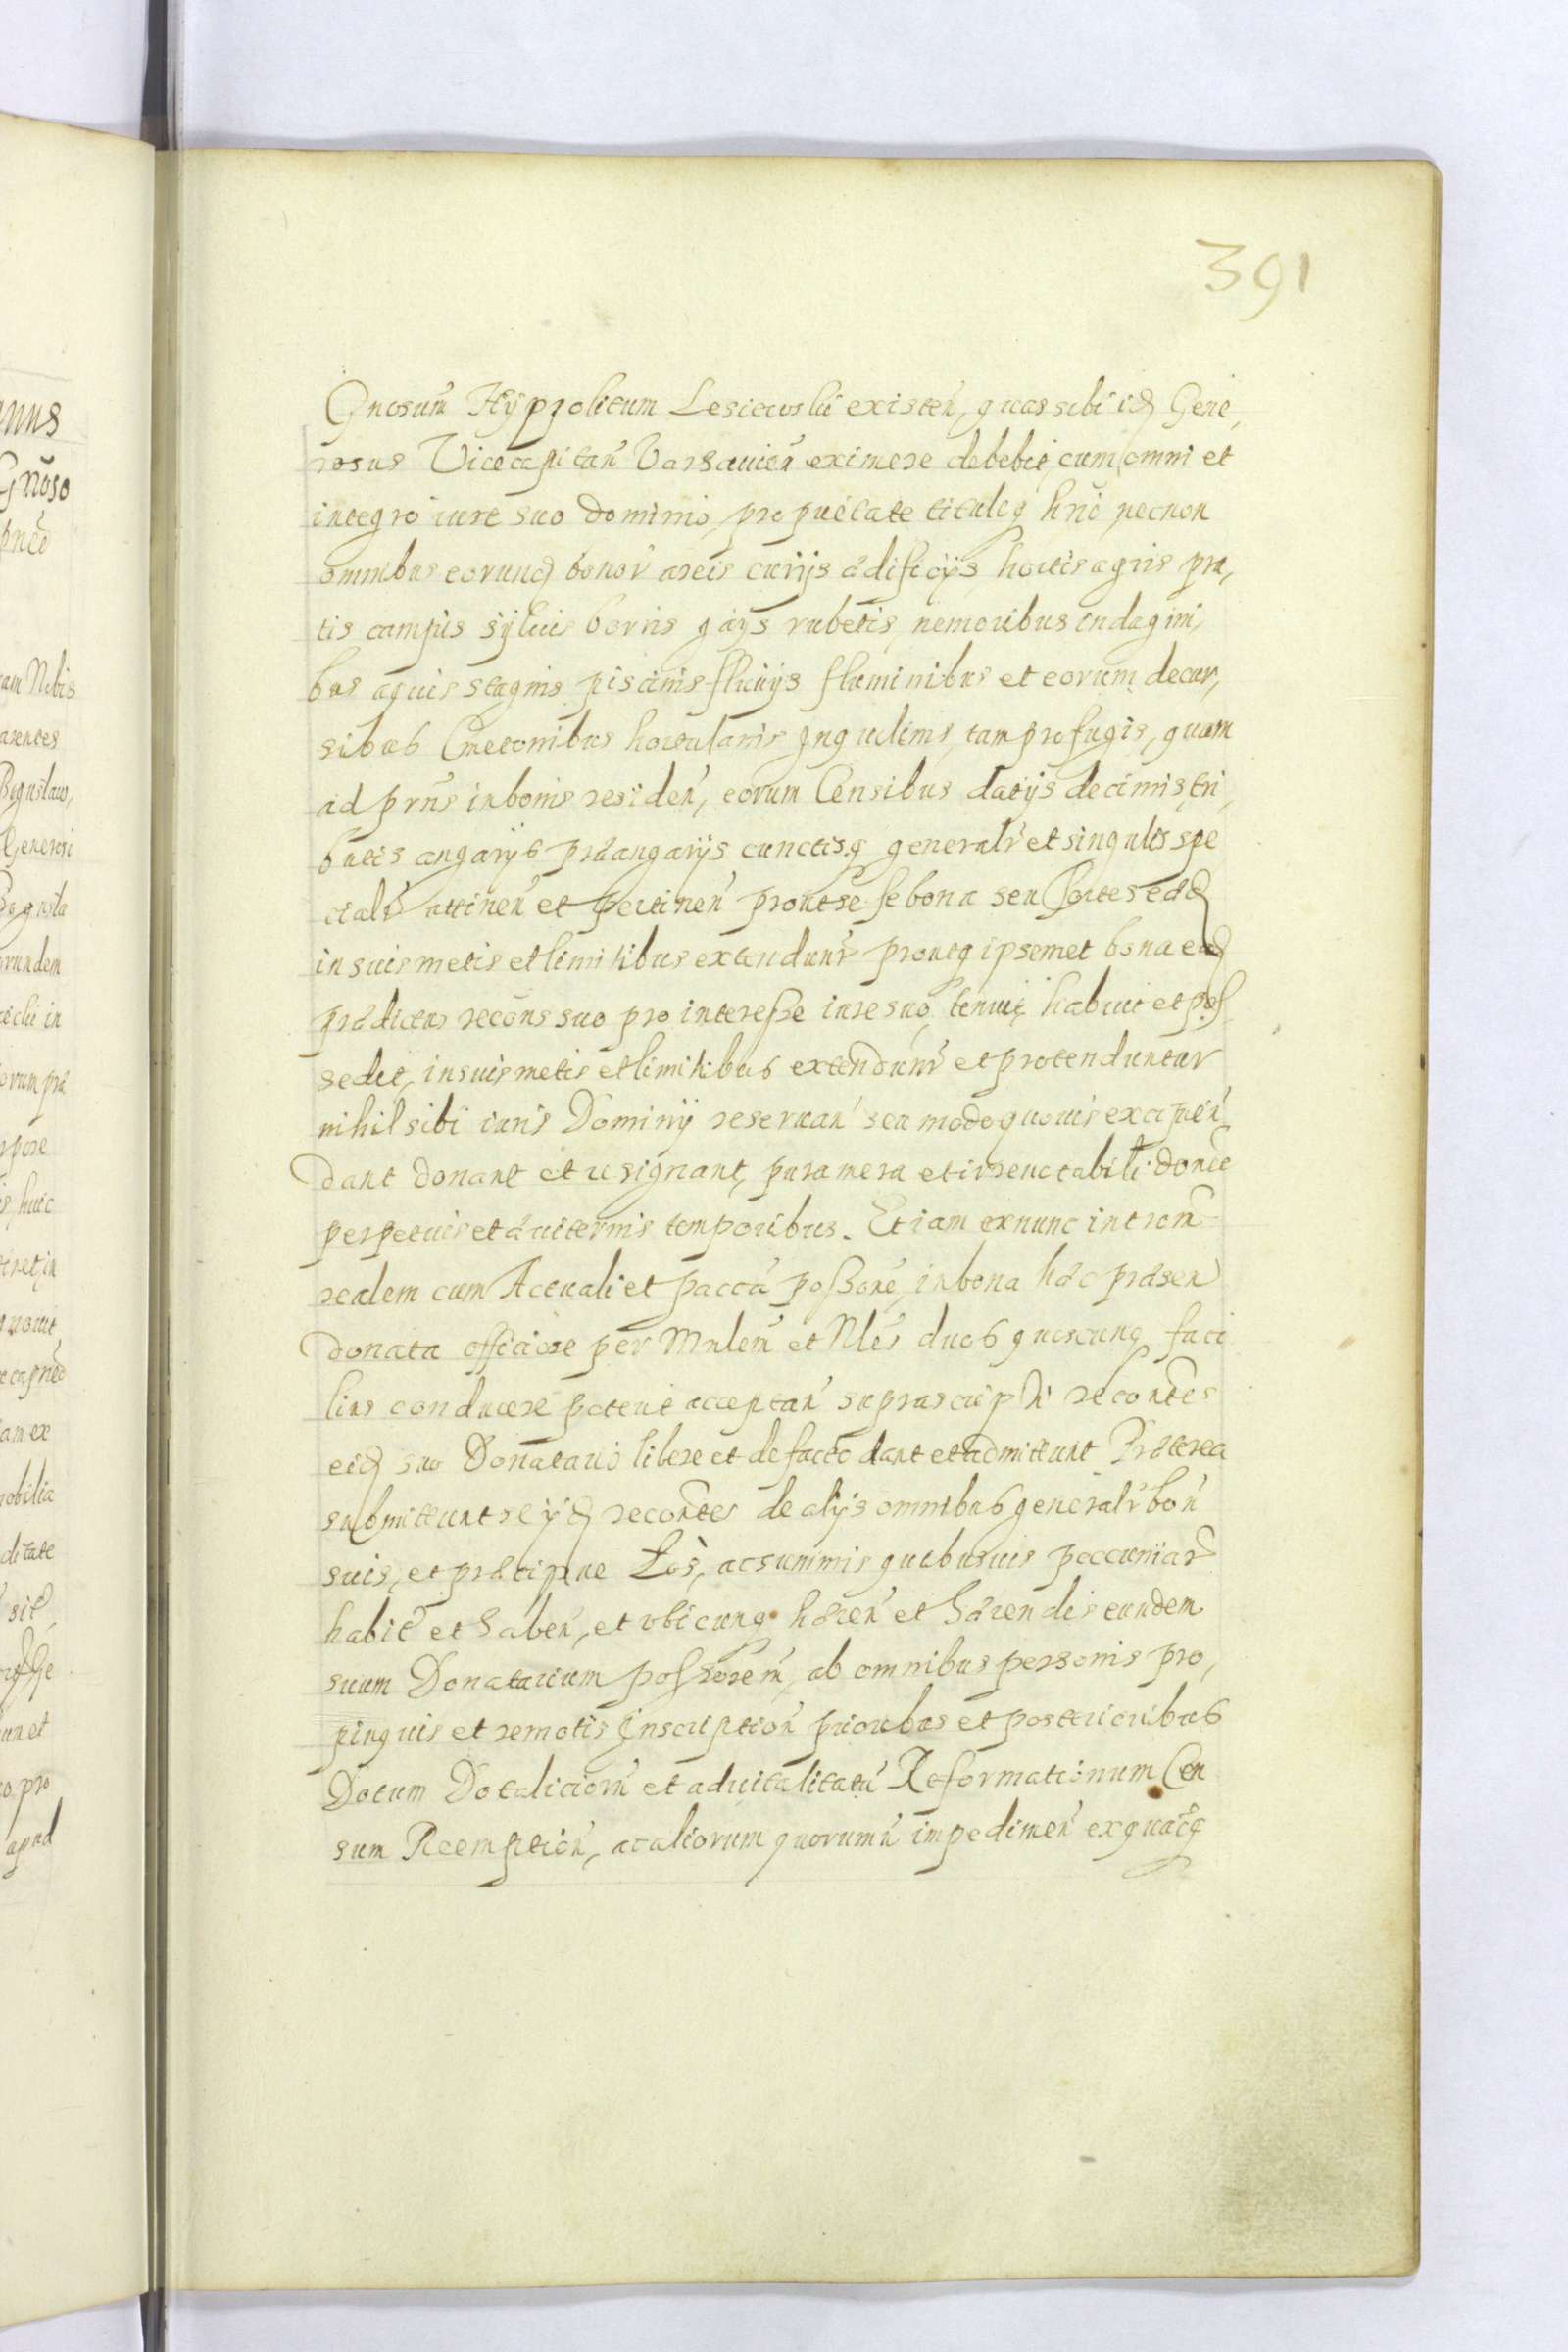 391
Gnosum Hyppolitum Lesiewski existen, quas sibi id Gene,
rosus Vicecapitan Varsavien eximere debebit, cum omni et
integro iure suo dominio, proprietate tituloq hrio necnon
omnibus eorund bonor areis curijs ædificijs hortis agris pra,
tis campis sylvis borris gays rubetis nemoribus indagini,
bus aquis stagnis piscinis fluvijs fluminibus et eorum decur,
sibus Cmetonibus hortulanis Inquilinis, tam profugis, quam
ad prns in bonis residen, eorum Censibus datijs decimis tri,
butis angarijs præangarijs cunctisq generalr et singulis spe
cialr attinen et pertinen prout se se bona seu Sortes eæd
in suis metis et limitibus extendunr proutq ipsemet bona ead
prædictus recons suo pro interesse iure suo tenuit habuit et pos
sedit, in suis metis et limitibus extendunr et protenduntur
nihil sibi iuris Dominij reservan seu modo quovis excipien
dant donant et resignant, pura mera et irrevocabili donoe
perpetuis et æviternis temporibus. Etiam ex nunc introm
realem cum Actuali et paccta possone, in bona hæc præsen
donata officiose per Mnlem et Nles duos quoscunq faci
lius conducere poterit acceptan suprascripti recontes
eid suo Donatario libere et de facto dant et admittunt Præterea
submittunt se ijd recontes de alijs omnibus generalr bon
suis, et præcipue Los, ac summis quibusvis peccuniar
habit et haben, et ubicunq hæren et hæren dis eundem
suum Donatarium possorem, ab omnibus personis pro,
pinquis et remotis Inscription prioribus et posterioribus
Dotum Dotaliciorum et advitalitatu Reformationum Cen
sum Reemption, ac aliorum quorumn impedimen ex quacq